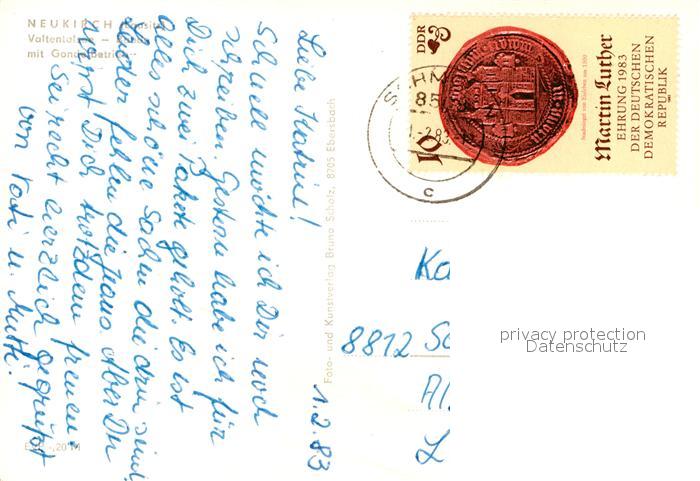 NEUKIRCH (Lausitz)
mit Gondelbetrieb
Liebe Katrin!
Schnell möchte ich Dir noch
schreiben. Gestern habe ich für
Dich zwei Pakete geholt. Es ist
alles schöne Sachen die drin sind.
Leider fehlen die Jeans. Aber Du
wirst Dich trotzdem freuen.
Sei recht herzlich gegrüßt
von Vati u. Mutti.
1.2.83
Foto- und Kunstverlag Bruno Scholz, 8705 Ebersbach
DDR
10
Martin Luther
EHRUNG 1983
DER DEUTSCHEN
DEMOKRATISCHEN
REPUBLIK
85
-2.83
C
Ka
8812 Sc
Al
L
privacy protection
Datenschutz